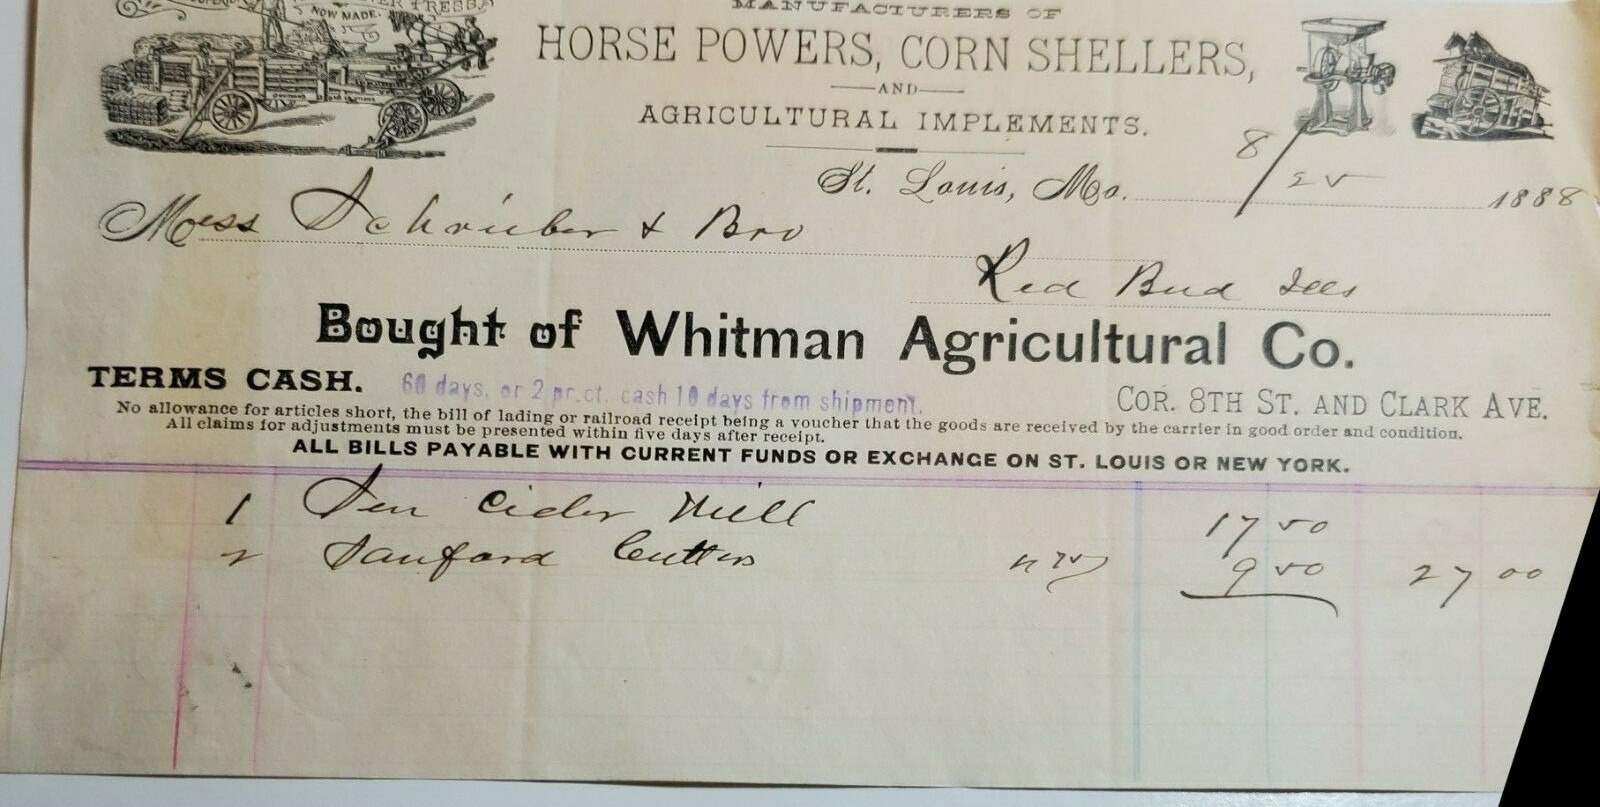 NOW MADE.
MANUFACTURERS OF
HORSE POWERS, CORN SHELLERS,
AND
AGRICULTURAL IMPLEMENTS.
St. Louis, Mo. 8/25 1888
Mess Schrieber & Bro
Red Bud Ills
Bought of Whitman Agricultural Co.
TERMS CASH. 60 days, or 2 pr.ct. cash 10 days from shipment.
COR. 8TH ST. AND CLARK AVE.
No allowance for articles short, the bill of lading or railroad receipt being a voucher that the goods are received by the carrier in good order and condition.
All claims for adjustments must be presented within five days after receipt.
ALL BILLS PAYABLE WITH CURRENT FUNDS OR EXCHANGE ON ST. LOUIS OR NEW YORK.
1 Sen Cider Mill 17 50
2 Sanford Cutters 4 75 9 50 27 00